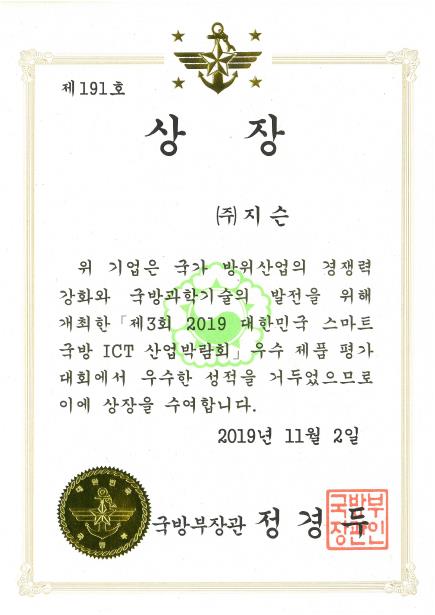 제 191호
상 장
㈜지슨
위 기업은 국가 방위산업의 경쟁력
강화와 국방과학기술의 발전을 위해
개최한「제3회 2019 대한민국 스마트
국방 ICT 산업박람회」우수 제품 평가
대회에서 우수한 성적을 거두었으므로
이에 상장을 수여합니다.
2019년 11월 2일
대한민국
국방부
국방부장관 정경두
국방부
장관인